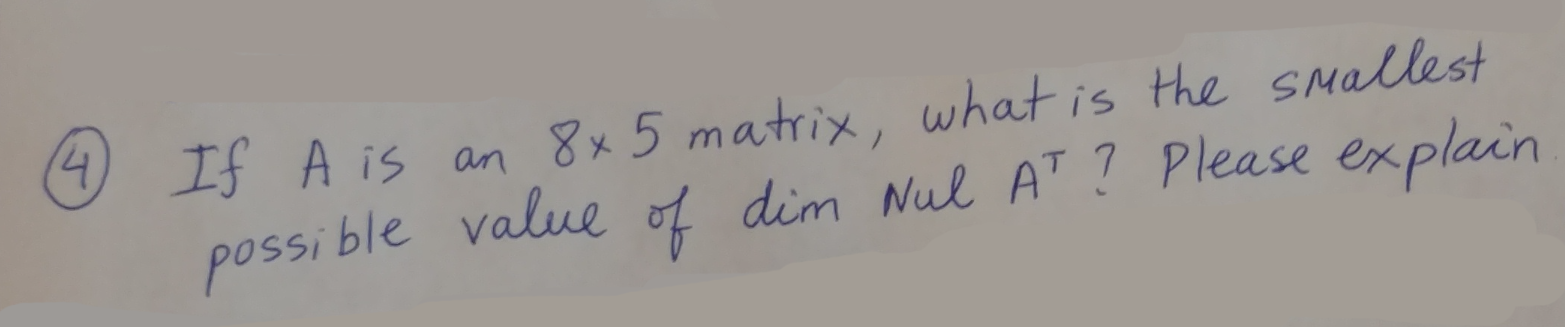 ④ If A is an 8x5 matrix, what is the smallest
possible value of dim Nul Aᵀ? Please explain